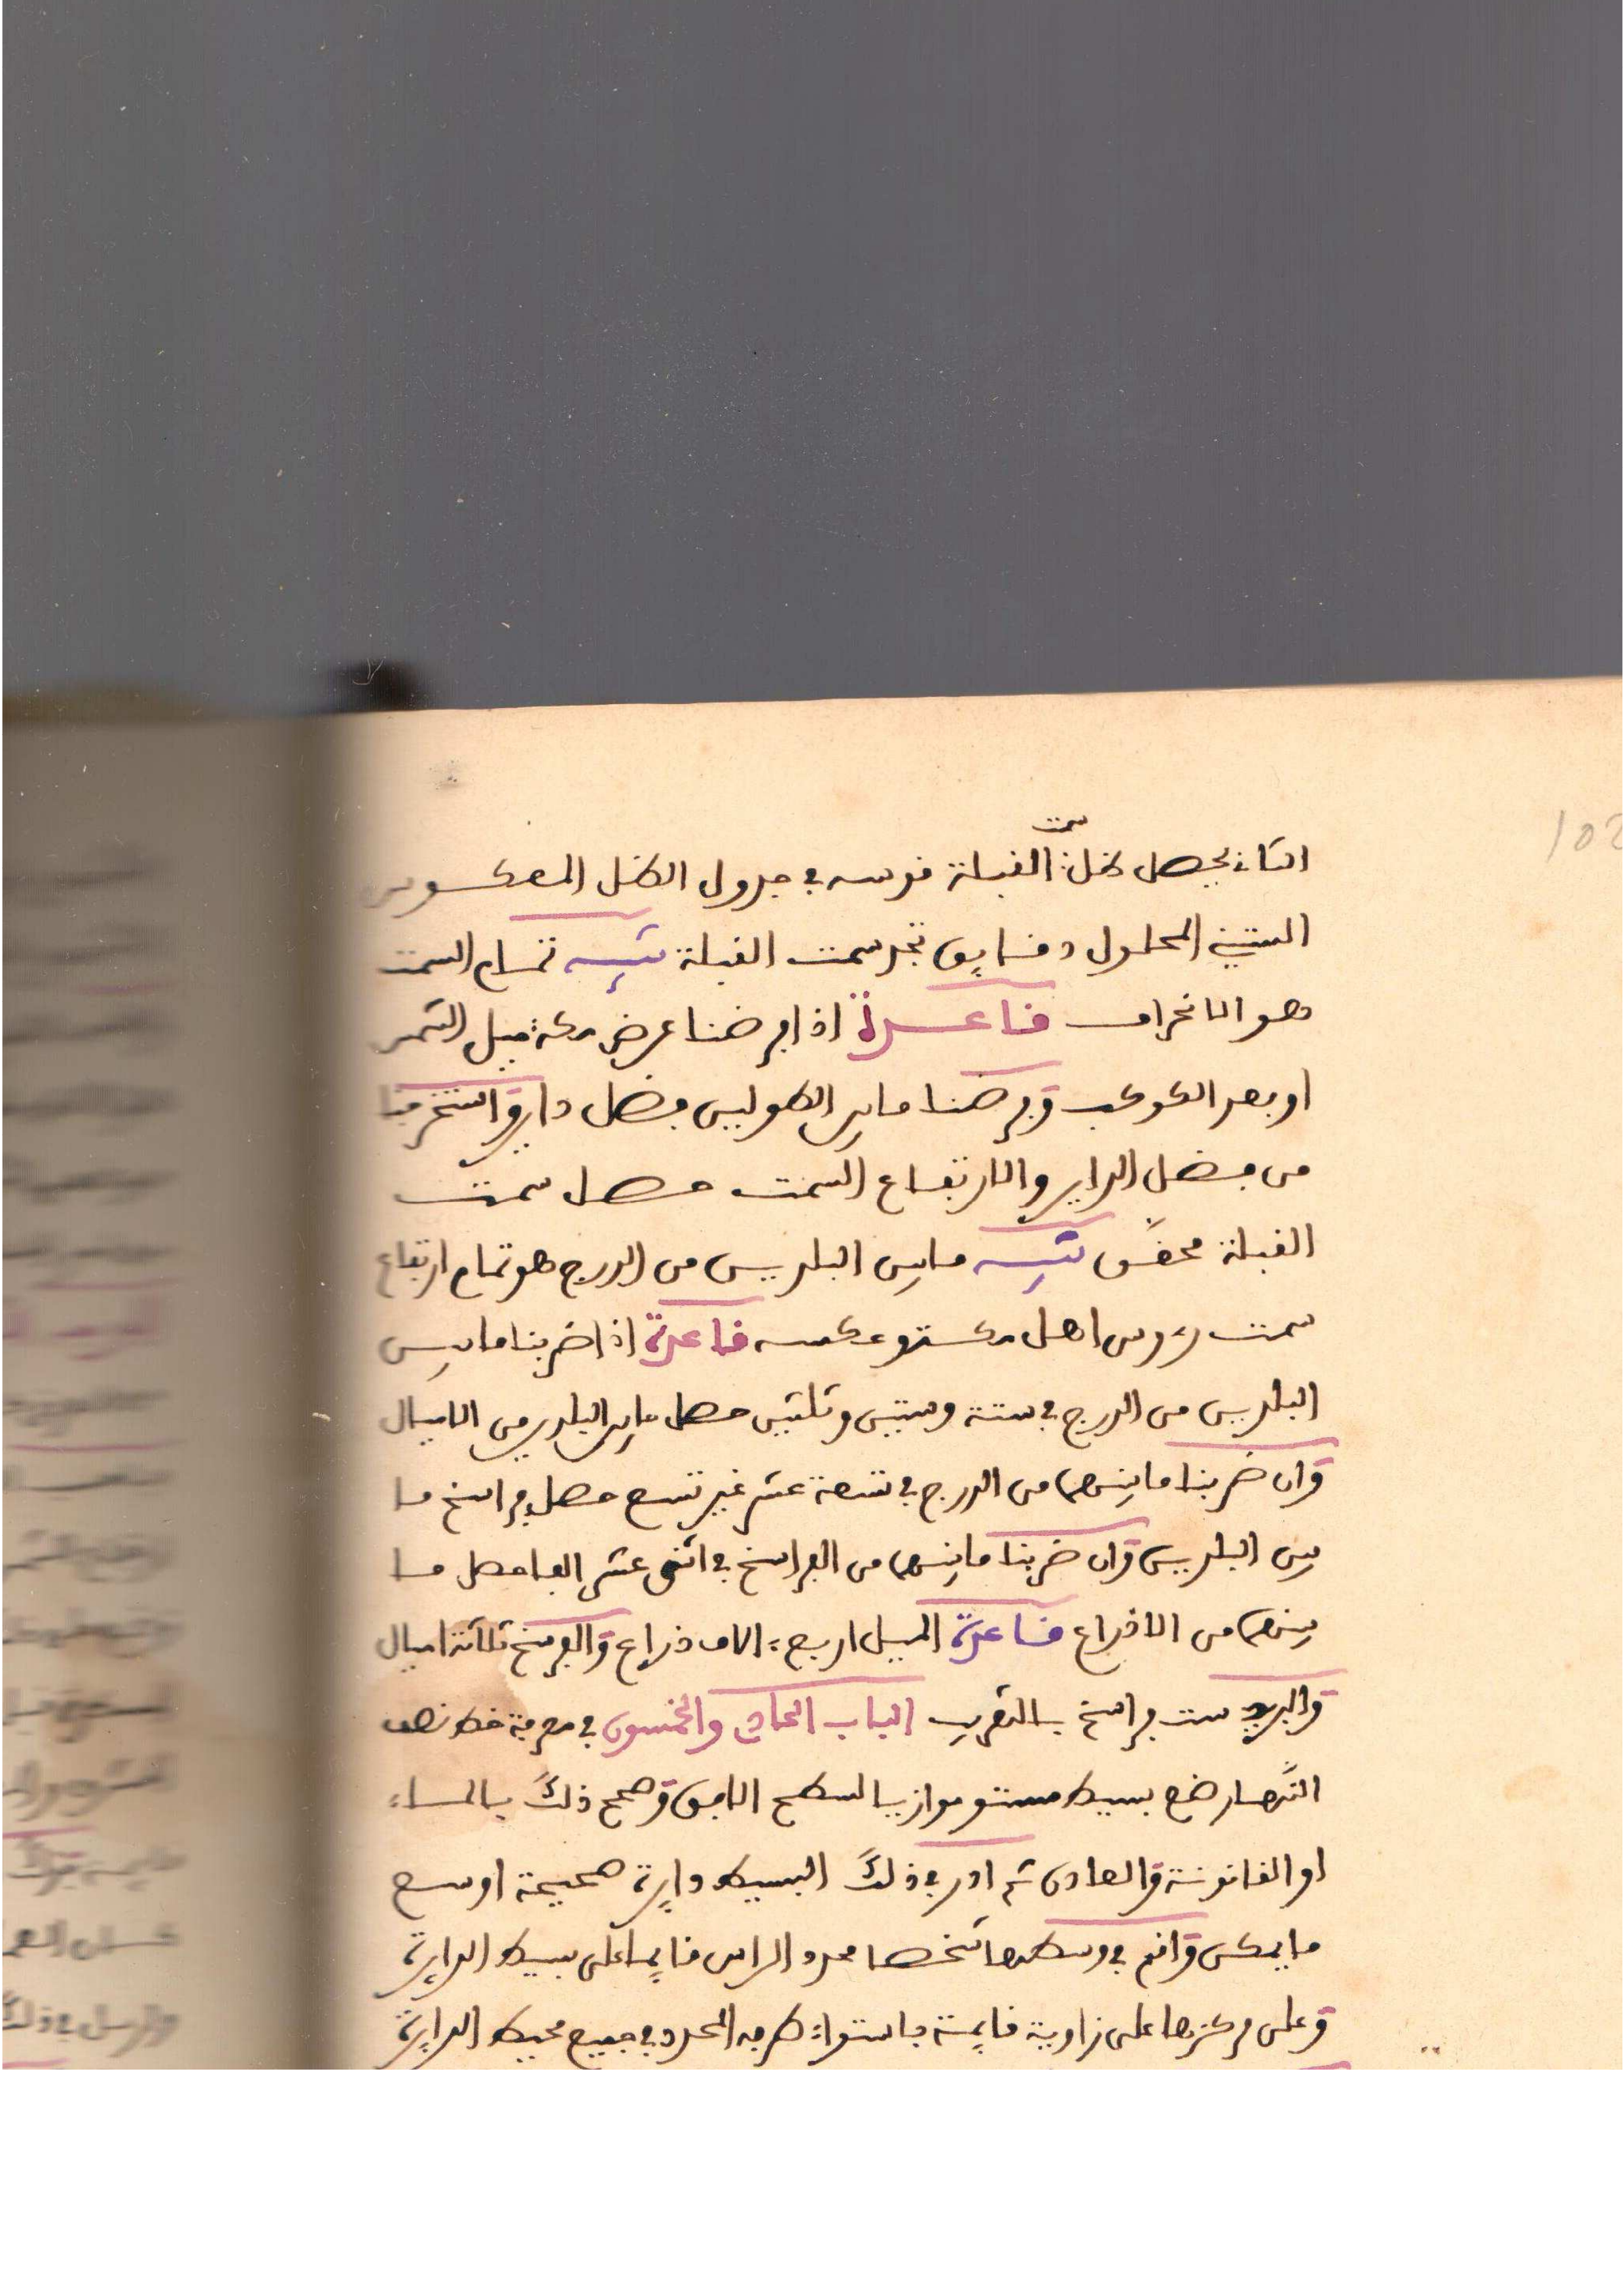 الثاني يحصل ظل سمت القبلة قوسه في جدول الظل المعكوس
الستيني المحلول دقايق تجد سمت القبلة تنبيه تمام السمت
هو الانحراف قاعدة اذا فرضنا عرض مكة ميل الشمس
او بعد الكوكب وفرضنا ما بين الطولين فضل داير واستخرجنا
من فضل الداير والارتفاع السمت حصل سمت
القبلة محققا تنبيه ما بين البلدين من الدرج هو تمام ارتفاع
سمت رءوس اهل مكة وعكسه قاعدة اذا ضربنا ما بين
البلدين من الدرج في ستة وستين وثلثين حصل ما بين البلدين من الاميال
وان ضربنا ما بينهما من الدرج في تسعة عشر غير تسع حصل فراسخ ما
بين البلدين وان ضربنا ما بينهما من الفراسخ في اثنى عشر الفا حصل ما
بينهما من الاذراع قاعدة الميل اربعة الاف ذراع والفرسخ ثلاثة اميال
والبريد ست فراسخ بالتقريب الباب الحادي والخمسون في معرفة خط نصف
النهار ضع بسيط مستو موازيا لسطح الافق وصحح ذلك بالماء
او الفانوسة والعادي ثم ادر في ذلك البسيط دايرة صحيحة اوسع
ما يمكن واقم في وسطها شخصا محدد الراس قايما على بسيط الدايرة
وعلى مركزها على زاوية قايمة باستواء طرفه المحدد في جميع محيط الدايرة